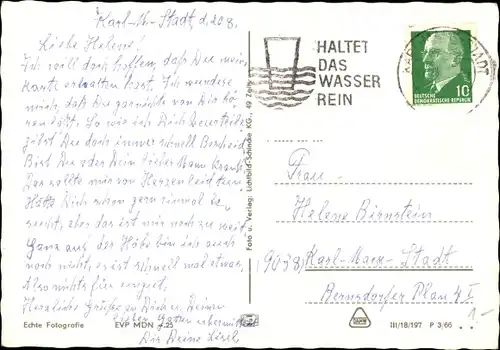 Karl-M-Stadt, d. 20 8.
Liebe Helene!
Ich will doch hoffen, daß Du meine
Karte erhalten hast. Ich wundere
mich, daß Du garnichts von Dir hö-
ren läßt. So wie ich Dich
gibst Du doch immer schnell Bescheid
Bist Du oder Dein lieber Mann krank?
Das sollte mir von Herzen leid tun.
Hätte Dich schon gern einmal be-
sucht, aber das ist mir noch zu weit
Ganz auf der Höhe bin ich auch
noch nicht, es ist schnell mal etwas.
Also nichts für ungut.
Herzliche Grüße an Dich u. Deinen
lieben Gatten übermittelt
Dir Deine
Echte Fotografie EVP MDN -.25
Foto u. Verlag: Lichtbild-Schincke KG., 49 Zeitz
HALTET
DAS
WASSER
REIN
KAR STADT
10
DEUTSCHE
DEMOKRATISCHE REPUBLIK
Frau
Helene Birnstein
9038 Karl-Marx-Stadt
Bernsdorfer Plan 4 I
1-
III/18/197 P 3/66